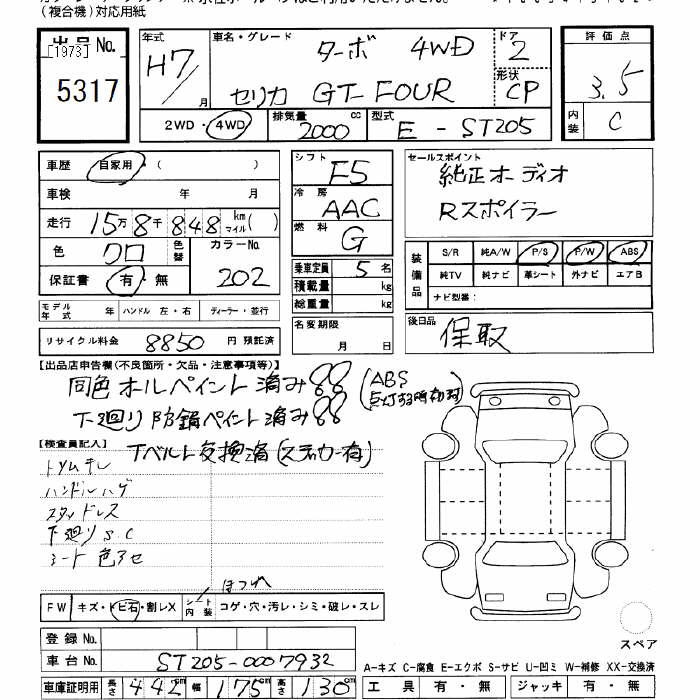 (複合機)対応用紙
出品 No.
[1973]
5317
年式
H7/月
車名・グレード
ターボ 4WD
セリカ GT-FOUR
ドア
2
形状
CP
評価点
3.5
内装
C
2WD・4WD
排気量
2000 cc
型式
E - ST205
車歴 自家用 ( )
車検 年 月
走行 15万8千848 km マイル( )
色 クロ 色替 カラーNo. 202
保証書 有・無
モデル年式 年 ハンドル 左・右 ディーラー・並行
リサイクル料金 8850 円 預託済
シフト
F5
冷房
AAC
燃料
G
乗車定員 5 名
積載量 kg
総重量 kg
名変期限
月 日
セールスポイント
純正オーディオ
Rスポイラー
装備品
S/R 純A/W P/S P/W ABS
純TV 純ナビ 革シート 外ナビ エアB
ナビ型番:
後日品
保取
【出品店申告欄(不良箇所・欠品・注意事項等)】
同色オールペイント済み
(ABS
下廻り防錆ペイント済み
Tベルト交換済(ステッカー有)
【検査員記入】
トリムキレ
ハンドルハゲ
スタッドレス
下廻りS.C
シート色アセ
ほつれ
FW キズ・トビ石・割レX シート内装 コゲ・穴・汚レ・シミ・破レ・スレ
登録 No.
車台 No. ST205-0007932
車庫証明用 長さ 442 cm 幅 175 cm 高さ 130 cm
スペア
A-キズ C-腐食 E-エクボ S-サビ U-凹ミ W-補修 XX-交換済
工具 有・無 ジャッキ 有・無